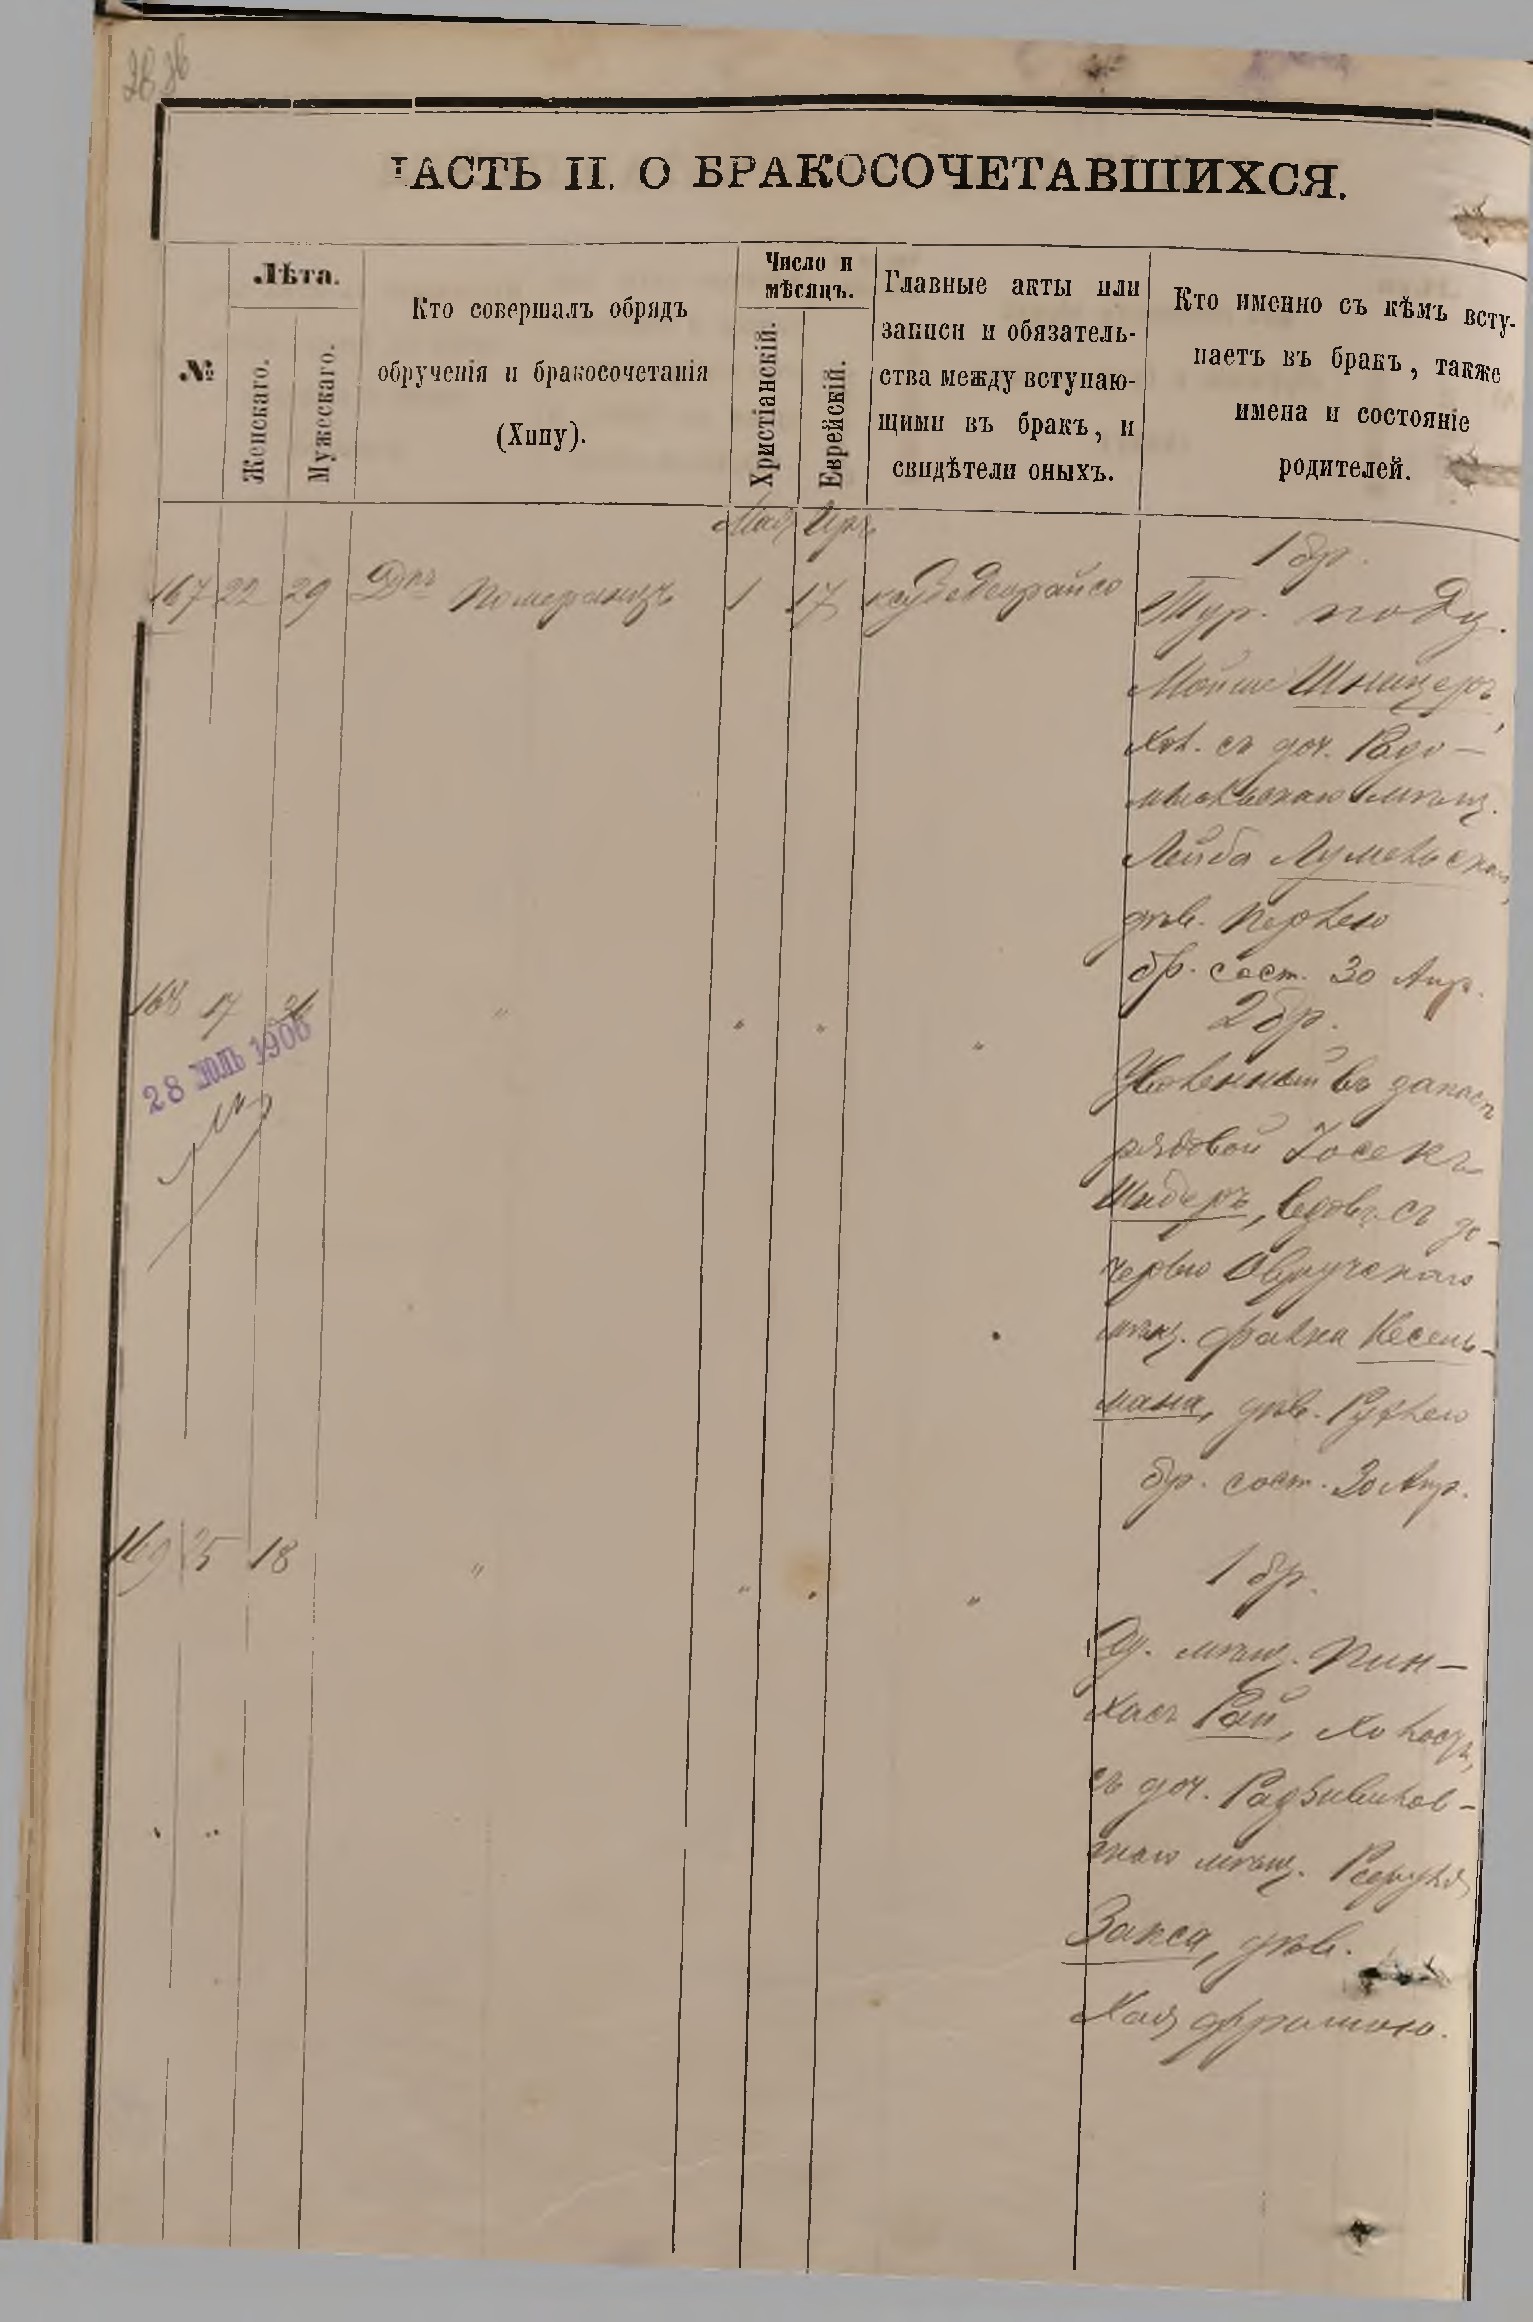 ЧАСТЬ II. О БРАКОСОЧЕТАВШИХСЯ.
№
Лѣта.
Женскаго.
Мужескаго.
Кто совершалъ обрядъ
обрученія и бракосочетанія
(Хипу).
Число и
мѣсяцъ.
Христіанскій.
Еврейскій.
Главные акты или
записи и обязатель-
ства между вступаю-
щими въ бракъ, и
свидѣтели оныхъ.
Кто именно съ кѣмъ всту-
паетъ въ бракъ, также
имена и состояніе
родителей.
Май Иръ
167 22 29 Померанцъ 1 17
1 бр.
Тур. подд.
Мойше Шницеръ,
хол. съ доч. Радо-
мысльскаго мѣщ.
Лейба
дѣв. Перлею
бр. сост. 30 Апр.
168 17 " " " "
28 ІЮЛЬ 1906
2 бр.
Уволенный въ запасъ
рядовой Іосекъ
Шидеръ, вдовъ съ до-
черью Овручскаго
мѣщ. Кесель-
мана, дѣв. Рухлею
бр. сост. 30 Апр.
169 25 18 " " " "
1 бр.
Од. мѣщ. Пин-
хасъ Рай, холост,
съ доч. Радзивилов-
скаго мѣщ.
Закса, дѣв.
Хая Фрумою.